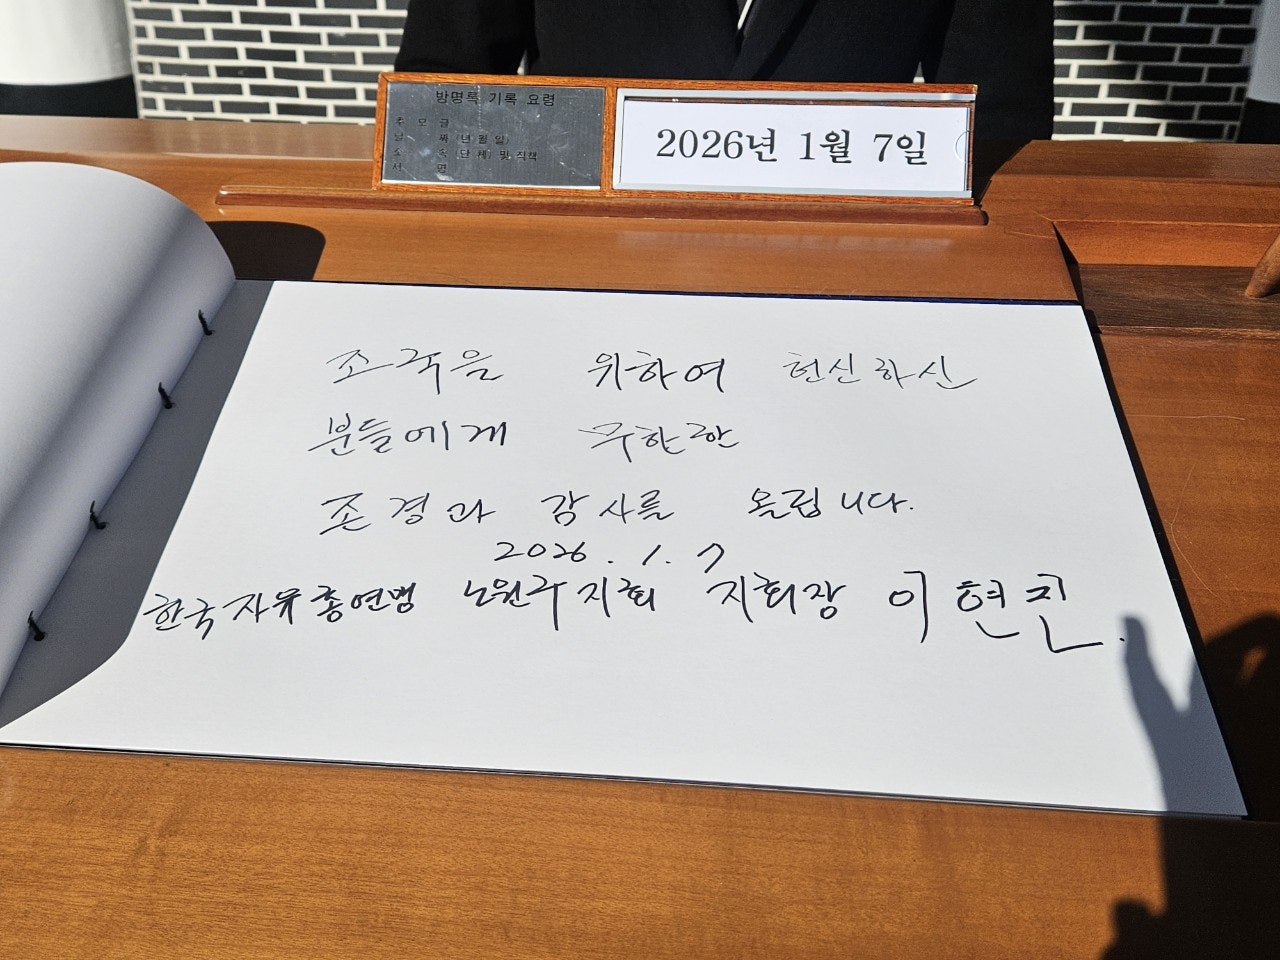 방명록 기록 요령
추 모 글
날 짜 (년 월 일)
소 속 (단체) 및 직책
서 명
2026년 1월 7일
조국을 위하여 헌신하신
분들에게 무한한
존경과 감사를 올립니다.
2026. 1. 7
한국자유총연맹 노원구지회 지회장 이현진.